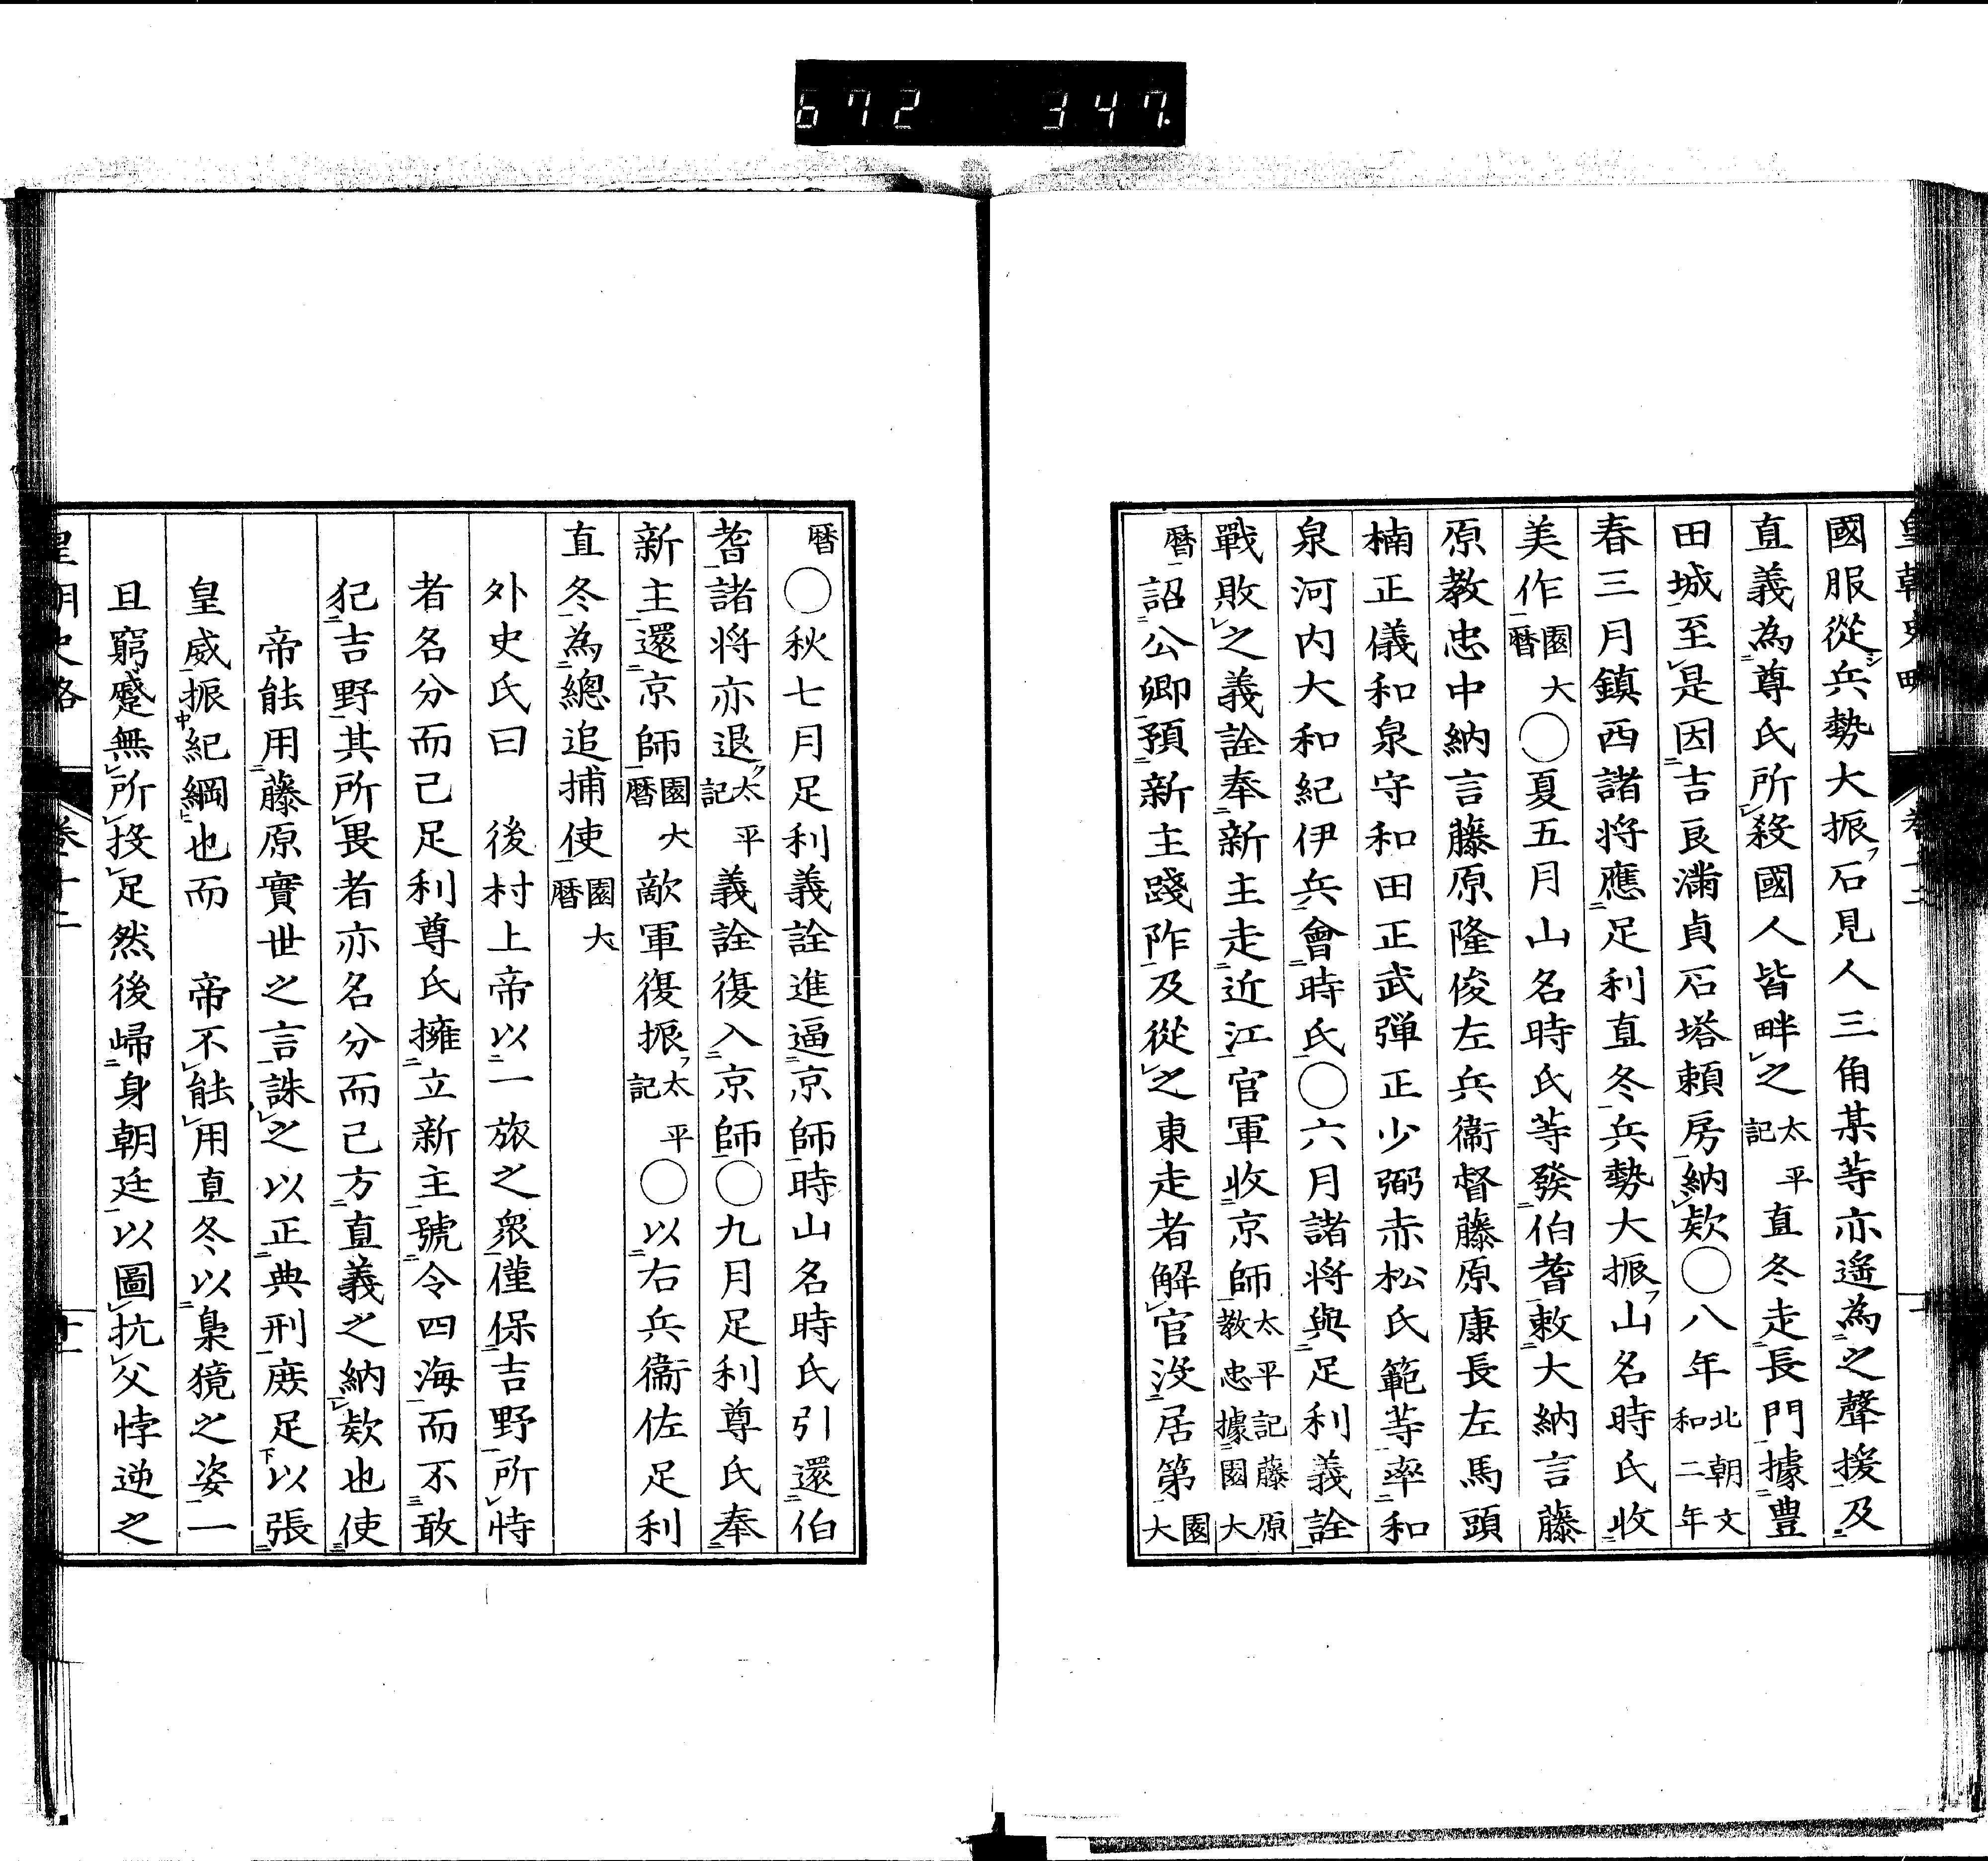 672 347.
皇朝史略 卷十二
國服從兵勢大振石見人三角某等亦遙為之聲援及
直義為尊氏所殺國人皆畔之太平記直冬走長門據豊
田城至是因吉良滿貞石塔頼房納欵○八年北朝文和二年
春三月鎮西諸将應足利直冬兵勢大振山名時氏收
美作園大暦○夏五月山名時氏等發伯耆敕大納言藤
原教忠中納言藤原隆俊左兵衞督藤原康長左馬頭
楠正儀和泉守和田正武弾正少弼赤松氏範等率和
泉河内大和紀伊兵會時氏○六月諸将與足利義詮
戰敗之義詮奉新主走近江官軍收京師太平記藤原教忠據園大
暦詔公卿預新主踐阼及從之東走者解官沒居第園大
暦○秋七月足利義詮進逼京師時山名時氏引還伯
耆諸将亦退太平記義詮復入京師○九月足利尊氏奉
新主還京師園大暦敵軍復振太平記○以右兵衞佐足利
直冬為總追捕使園大暦
外史氏曰 後村上帝以一旅之衆僅保吉野所恃
者名分而己足利尊氏擁立新主號令四海而不敢
犯吉野其所畏者亦名分而己方直義之納欵也使
帝能用藤原實世之言誅之以正典刑庻足以張
皇威振紀綱也而 帝不能用直冬以梟獍之姿一
旦窮蹙無所投足然後歸身朝廷以圖抗父悖逆之
皇朝史略 卷十二